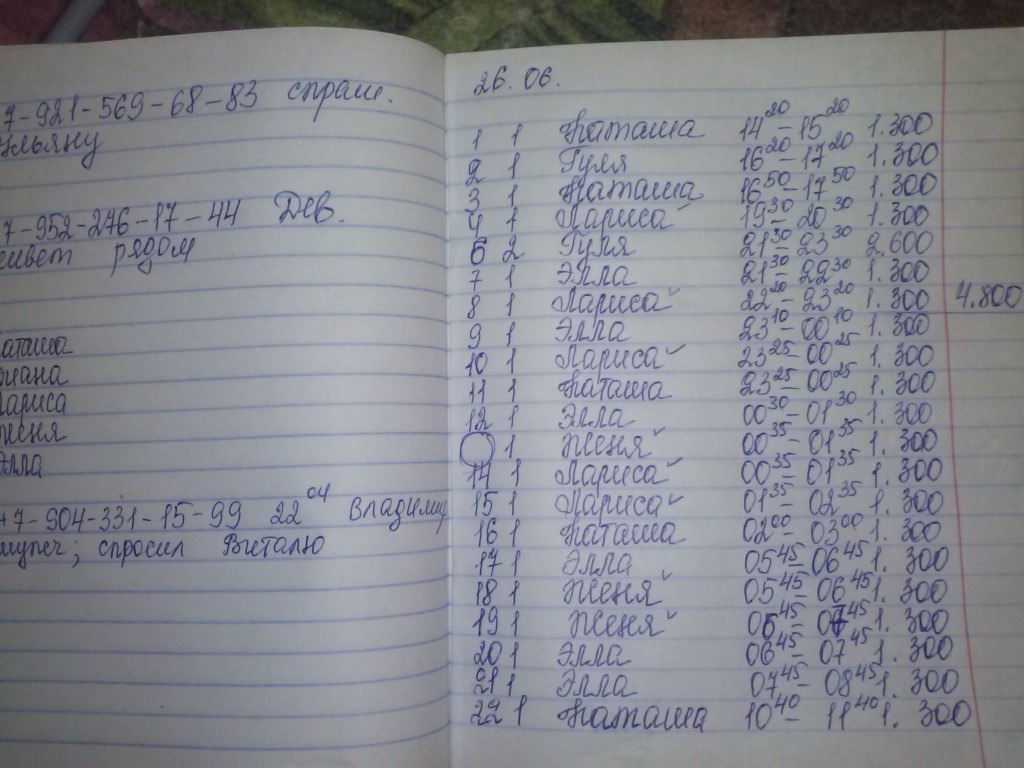 7-921-569-68-83 спраш.
Ульяну
7-952-246-17-44 Дев.
живет рядом
Наташа
Диана
Лариса
Женя
Элла
+7-904-331-15-99 22 04 Владимир
спросил Виталю
26.06.
1 1 Наташа 14 20 - 15 20 1.300
2 1 Гуля 16 20 - 17 20 1.300
3 1 Наташа 16 50 - 17 50 1.300
4 1 Лариса 19 30 - 20 30 1.300
6 2 Гуля 21 30 - 23 30 2.600
7 1 Элла 21 30 - 22 30 1.300
8 1 Лариса 22 20 - 23 20 1.300 4.800
9 1 Элла 23 10 - 00 10 1.300
10 1 Лариса 23 25 - 00 25 1.300
11 1 Наташа 23 25 - 00 25 1.300
12 1 Элла 00 30 - 01 30 1.300
1 Женя 00 35 - 01 35 1.300
14 1 Лариса 00 35 - 01 35 1.300
15 1 Лариса 01 35 - 02 35 1.300
16 1 Наташа 02 00 - 03 00 1.300
17 1 Элла 05 45 - 06 45 1.300
18 1 Женя 05 45 - 06 45 1.300
19 1 Женя 06 45 - 07 45 1.300
20 1 Элла 06 45 - 07 45 1.300
21 1 Элла 07 45 - 08 45 1.300
22 1 Наташа 10 40 - 11 40 1.300